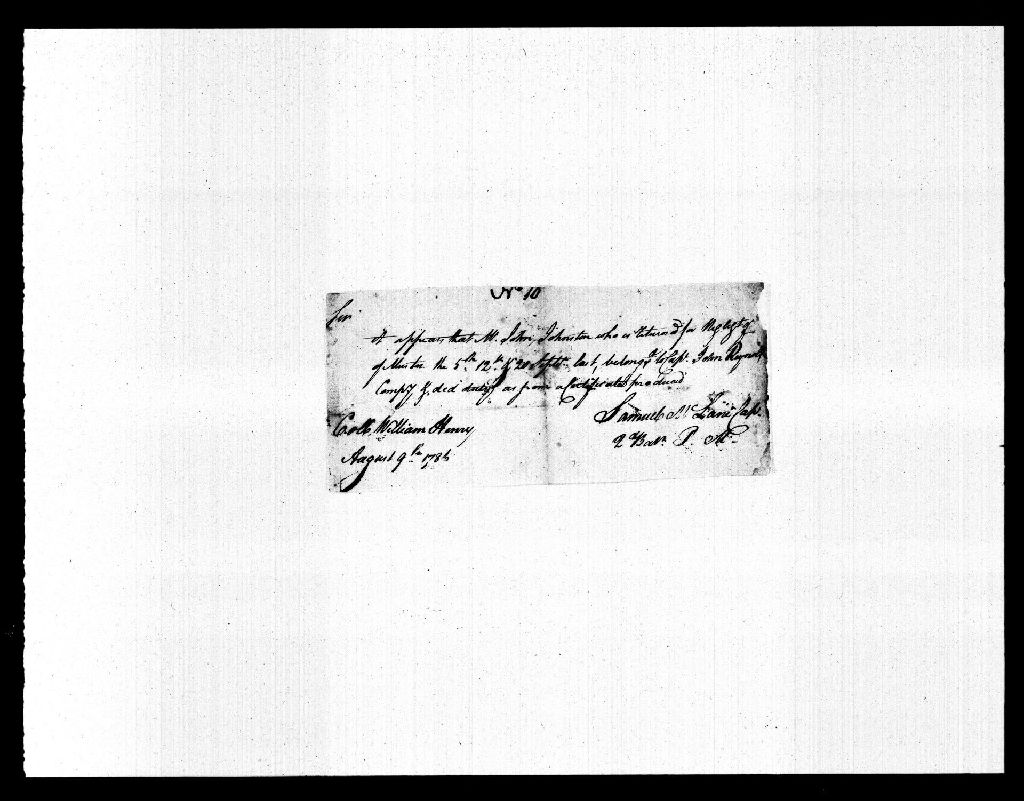 No. 10
Sir
It appears that Mr. John Johnston who is returned for Neglect
of Muster the 5th 12th & 20 Septr. last, belong'd to Capt. John
Compy & did duty as from a Certificate produced
Samuel Mc Lane Capt.
Coll. William Henry
2d Batn. P. M.
August 9th